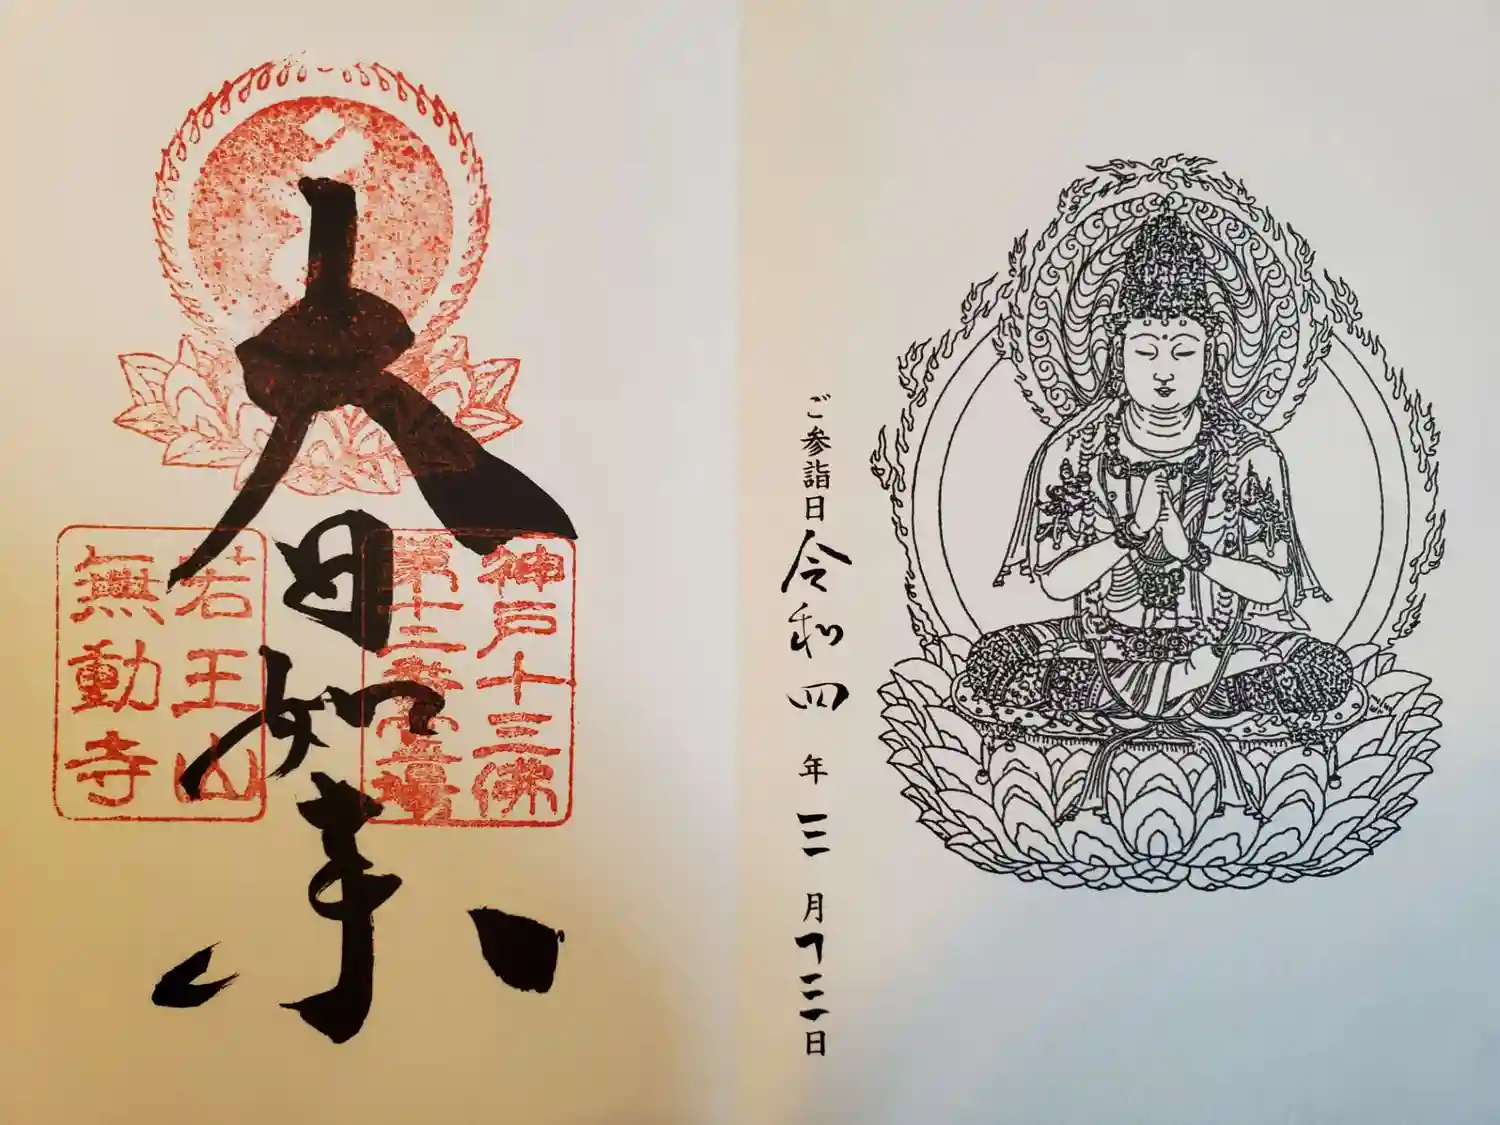 ご参詣日 令和四年三月十三日
神戸十三佛
第十二番霊場
大日如来
若王山
無動寺